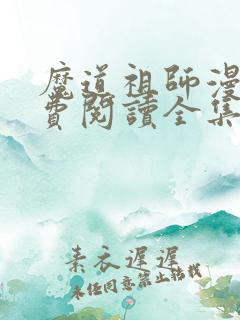 魔道祖師漫
費閱讀全集
素衣遲遲
未經同意禁止轉載